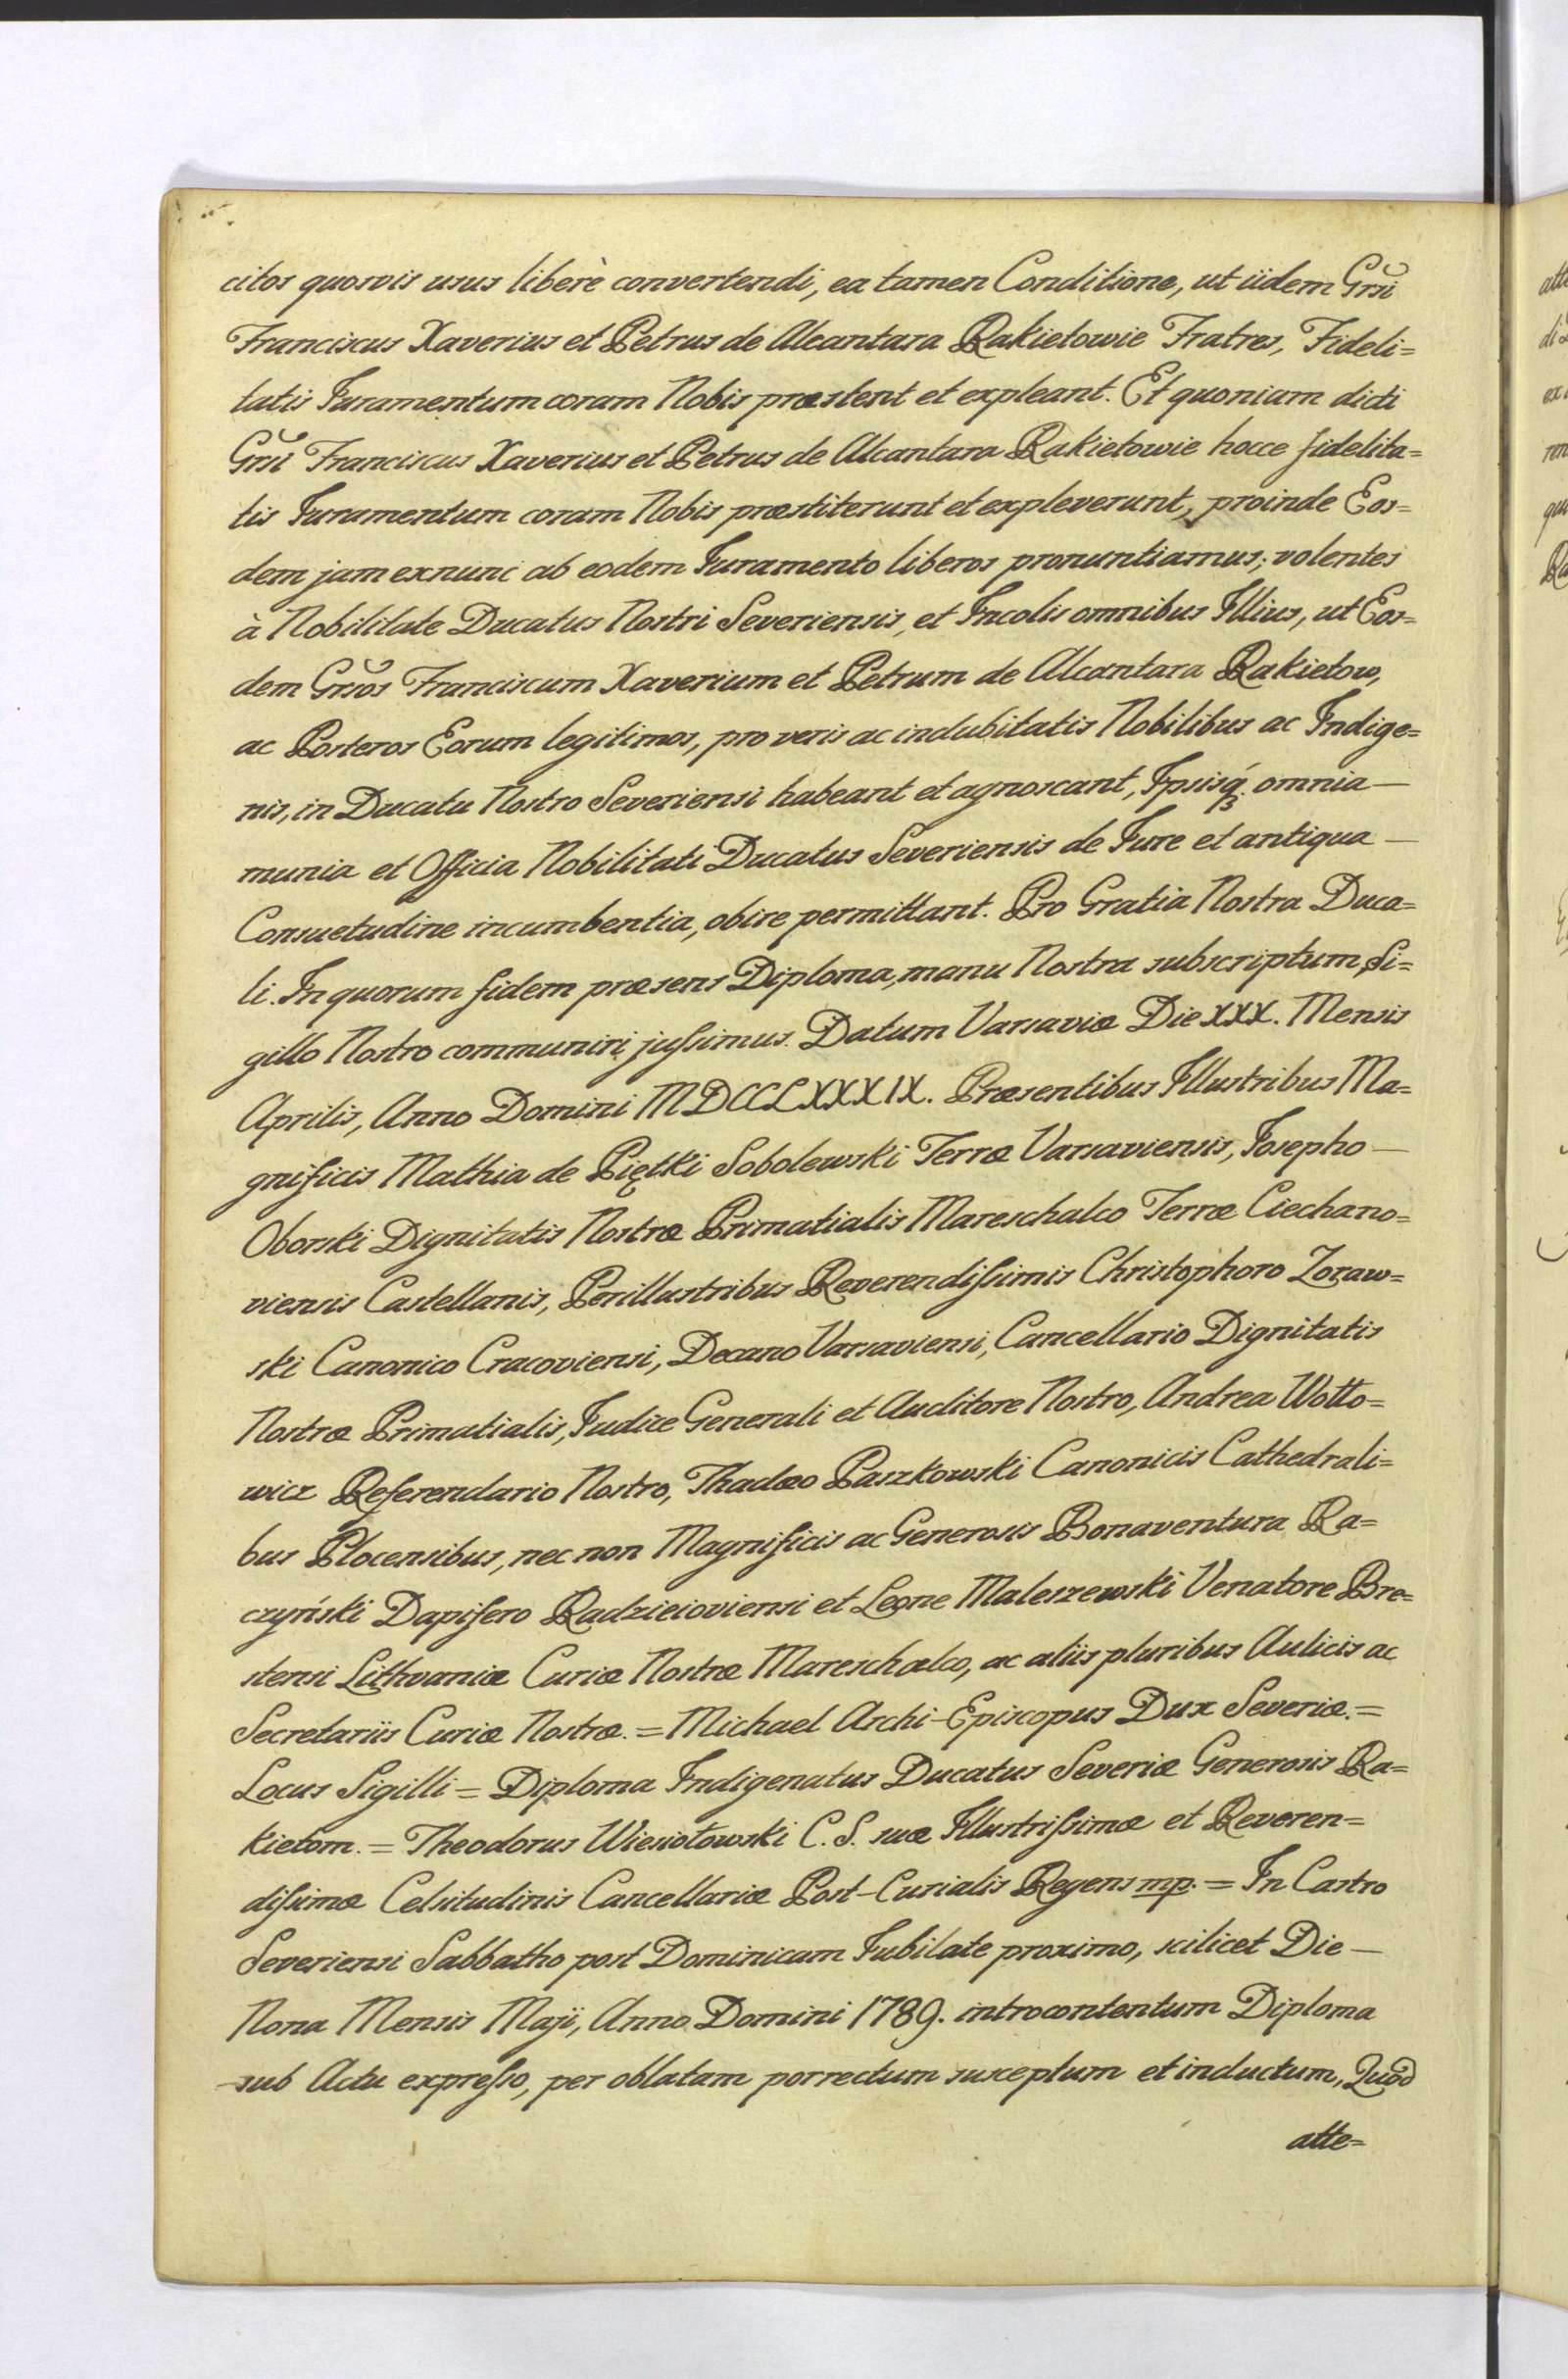 citos quosvis usus liberè convertendi, ea tamen Conditione, ut iidem Grsi
Franciscus Xaverius et Petrus de Alcantara Rakietowie Fratres, Fideli=
tatis Juramentum coram Nobis præstent et expleant. Et quoniam dicti
Grsi Franciscus Xaverius et Petrus de Alcantara Rakietowie hocce fidelita=
tis Juramentum coram Nobis præstiterunt et expleverunt, proinde Eos=
dem jam exnunc ab eodem Juramento liberos pronuntiamus; volentes
à Nobilitate Ducatus Nostri Severiensis, et Incolis omnibus Illius, ut Eos=
dem Grsos Franciscum Xaverium et Petrum de Alcantara Rakietow,
ac Posteros Eorum legitimos, pro veris ac indubitatis Nobilibus ac Indige=
nis, in Ducatu Nostro Severiensi habeant et agnoscant, Ipsisq́ꝫ omnia —
munia et Officia Nobilitati Ducatus Severiensis de Jure et antiqua —
Consuetudine incumbentia, obire permittant. Pro Gratia Nostra Duca=
li. In quorum fidem præsens Diploma, manu Nostra subscriptum, Si=
gillo Nostro communiri jussimus. Datum Varsaviæ Die XXX. Mensis
Aprilis, Anno Domini MDCCLXXXIX. Præsentibus Illustribus Ma=
gnificis Mathia de Piętki Sobolewski Terræ Varsaviensis, Josepho —
Oborski Dignitatis Nostræ Primatialis Mareschalco Terræ Ciechano=
viensis Castellanis, Perillustribus Reverendissimis Christophoro Zoraw=
ski Canonico Cracoviensi, Decano Varsaviensi, Cancellario Dignitatis
Nostræ Primatialis, Judice Generali et Auditore Nostro, Andrea Wołło=
wicz Referendario Nostro, Thadæo Paszkowski Canonicis Cathedrali=
bus Plocensibus, nec non Magnificis ac Generosis Bonaventura Ra=
czyński Dapifero Radzieioviensi et Leone Maleszewski Venatore Bre=
stensi Lithvaniæ Curiæ Nostræ Mareschalco, ac aliis pluribus Aulicis ac
Secretariis Curiæ Nostræ. = Michael Archi-Episcopus Dux Severiæ. =
Locus Sigilli = Diploma Indigenatus Ducatus Severiæ Generosis Ra=
kietom. = Theodorus Wiesiołowski C. S. suæ Illustrissimæ et Reveren=
dissimæ Celsitudinis Cancellariæ Post-Curialis Regens mp. = In Castro
Severiensi Sabbatho post Dominicam Jubilate proximo, scilicet Die —
Nona Mensis Maji, Anno Domini 1789. introcontentum Diploma
sub Actu expresso, per oblatam porrectum susceptum et inductum, Quod
atte=